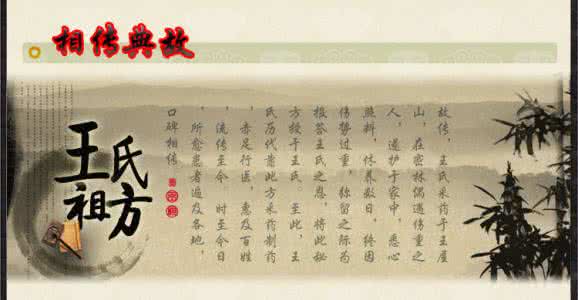 相传典故
王氏祖方
故传，王氏采药于王屋
山，在密林偶遇伤重之
人，遂护于家中，悉心
照料，休养数日，终因
伤势过重，弥留之际为
报答王氏之恩，将此秘
方授于王氏。至此，王
氏历代靠此方采药制药
，赤足行医，惠及百姓
，流传至今。时至今日
，所愈患者遍及各地，
口碑相传。